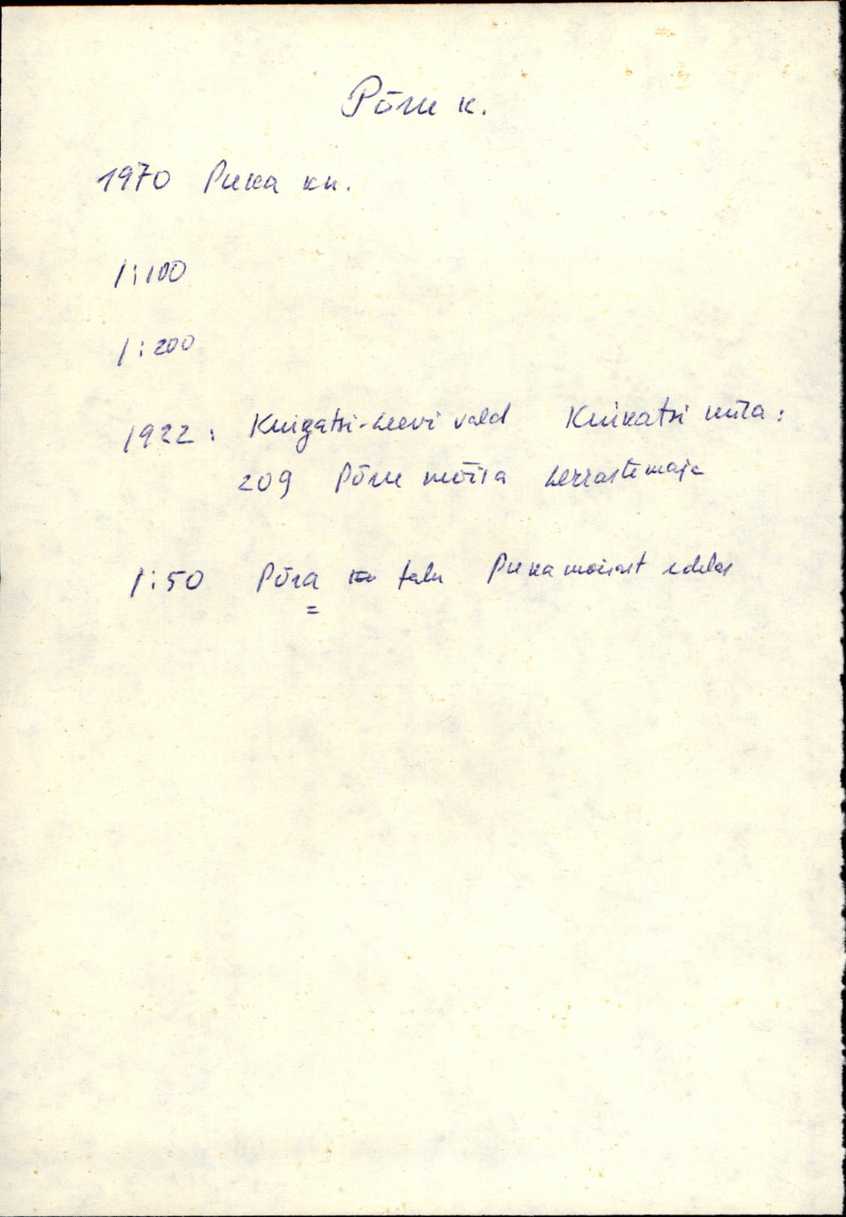 Põru k.
1970 Puka kn.
1:100
1:200
1922: Kuigatsi-Leevi vald Kuikatsi mõisa:
209 Põru mõisa herrastemaja
1:50 Põra talu Puka mõisast edelas